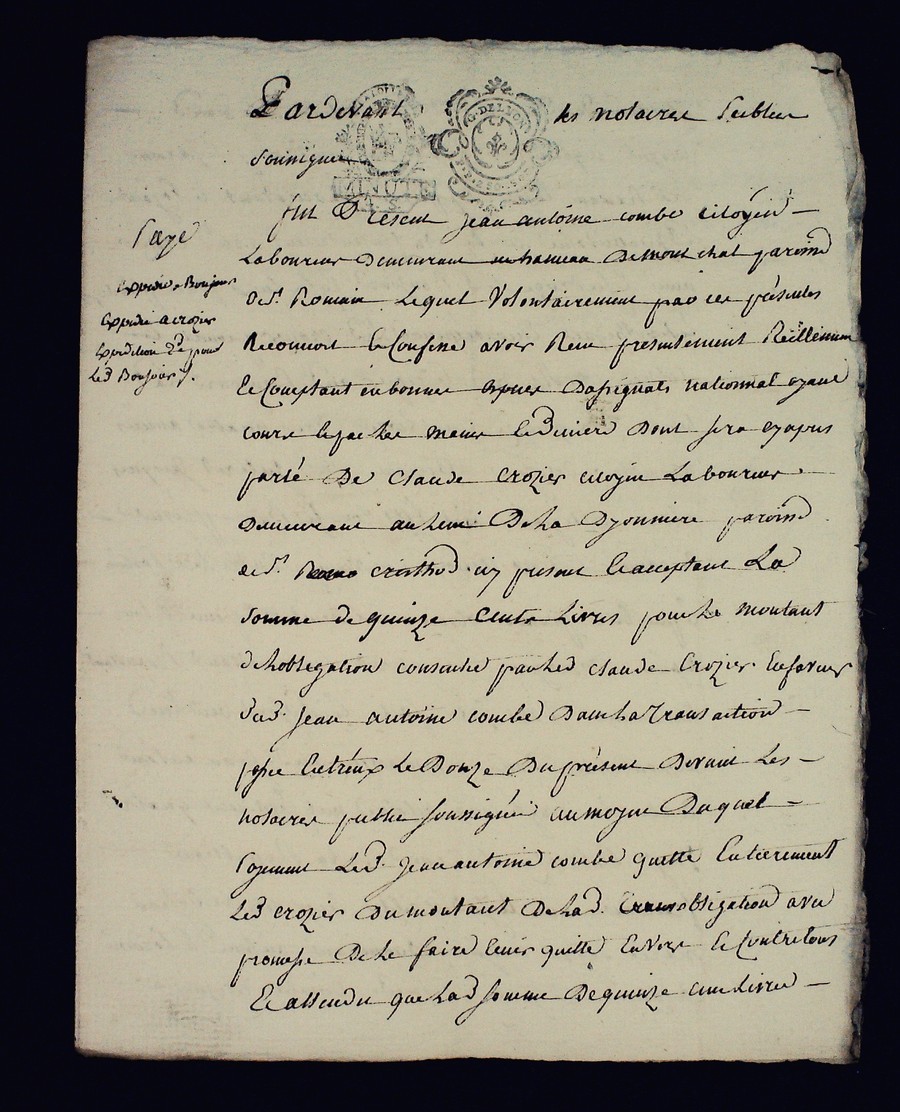 Pardevant les notaires publics
soussignes
fut Present jean antoine combe citoyen
Laboureur demeurant au hameau de montchal paroisse
de st. Romain Lequel Volontairement par ces presentes
Reconnoit et Confesse avoir Recu presentement Réellement
et Comptant en bonnes espces dassignats nationnal ayant
cours le par les mains le Deniere Dont sera cy apres
parlé De Claude crozier citoyen Laboureur
demeurant au lieu De La Dyonniere paroisse
de st. cristhod. icy present et acceptant La
somme de quinze Cents Livres pour le montant
de Lobligation consentie par Led Claude Crozier En faveur
dud. jean antoine combe Dans La Transaction
passée Entreux Le Douze Du présent Devant Les
notaires publics soussignée au moyen Duquel
payement Led. jean antoine combe quitte Entierement
Led crozier Du montant De Lad. obligation avec
promesse De Le faire tenir quitte Envers et Contre tous
Et attendu que Lad somme De quinze cent Livres
Payé
Expedié a Bonjour
Expedié a crozier
Expedition 2e pour
Led Bonjour
G. DE LYON